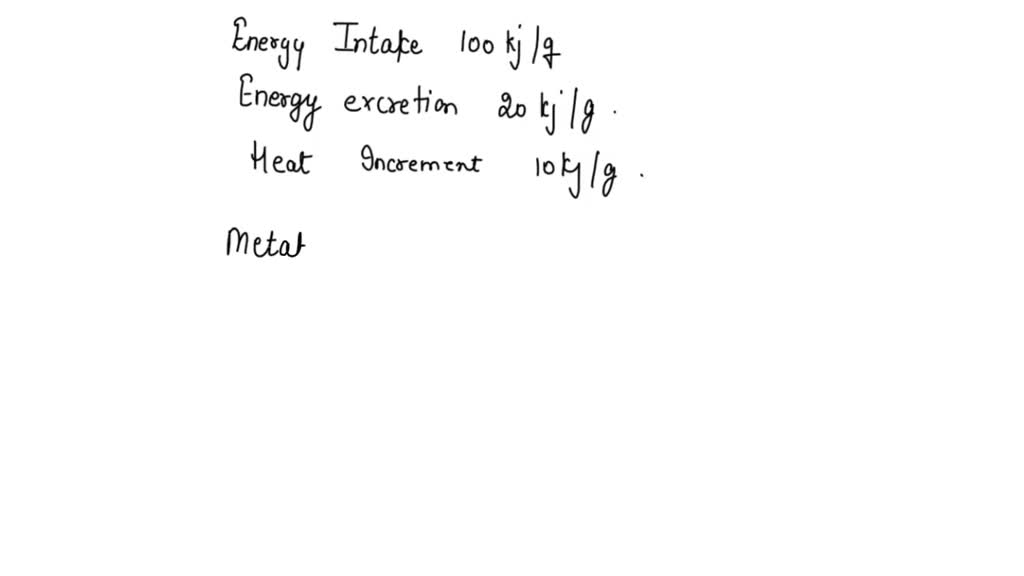 Energy Intake 100 kj/g
Energy excretion 20 kj/g.
Heat Increment 10 kj/g.
Metab